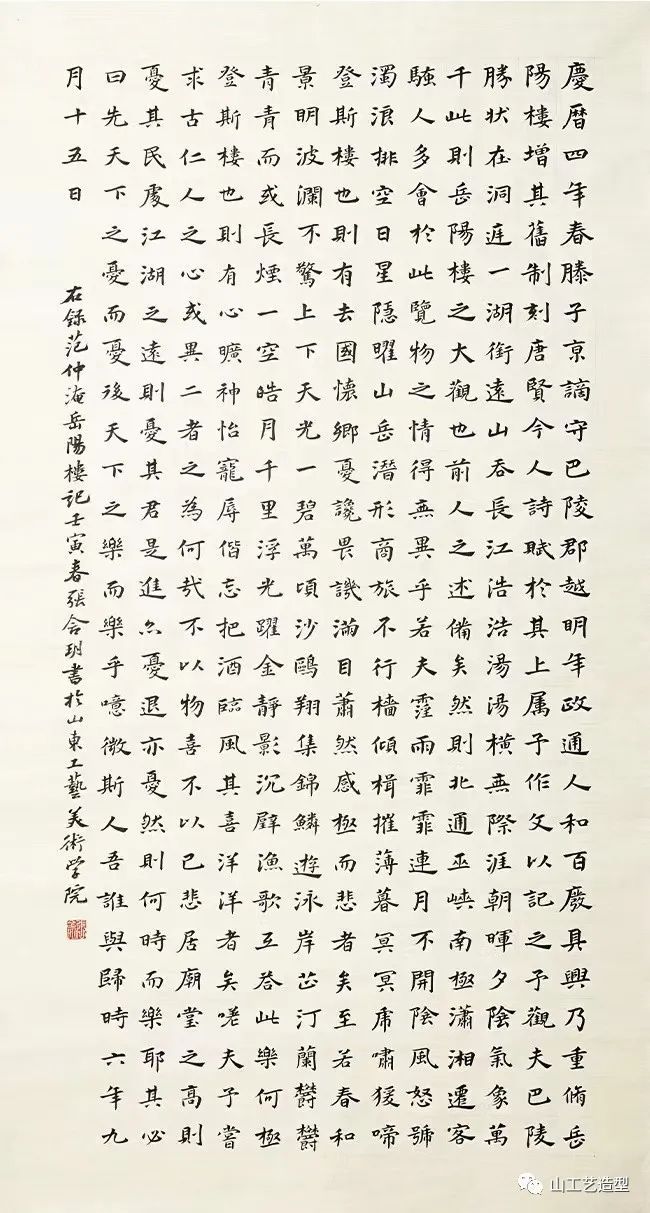 慶曆四年春滕子京謫守巴陵郡越明年政通人和百廢具興乃重脩岳
陽樓增其舊制刻唐賢今人詩賦於其上属予作文以記之予觀夫巴陵
勝狀在洞庭一湖銜遠山吞長江浩浩湯湯橫無際涯朝暉夕陰氣象萬
千此則岳陽樓之大觀也前人之述備矣然則北通巫峽南極瀟湘遷客
騷人多會於此覽物之情得無異乎若夫霪雨霏霏連月不開陰風怒號
濁浪排空日星隱曜山岳潛形商旅不行檣傾楫摧薄暮冥冥虎嘯猨啼
登斯樓也則有去國懷鄉憂讒畏譏滿目蕭然感極而悲者矣至若春和
景明波瀾不驚上下天光一碧萬頃沙鷗翔集錦鱗遊泳岸芷汀蘭鬱鬱
青青而或長煙一空皓月千里浮光躍金靜影沉璧漁歌互答此樂何極
登斯樓也則有心曠神怡寵辱偕忘把酒臨風其喜洋洋者矣嗟夫予嘗
求古仁人之心或異二者之為何哉不以物喜不以己悲居廟堂之高則
憂其民處江湖之遠則憂其君是進亦憂退亦憂然則何時而樂耶其必
曰先天下之憂而憂後天下之樂而樂乎噫微斯人吾誰與歸時六年九
月十五日
右錄范仲淹岳陽樓記壬寅春張含玥書於山東工藝美術学院
山工艺造型